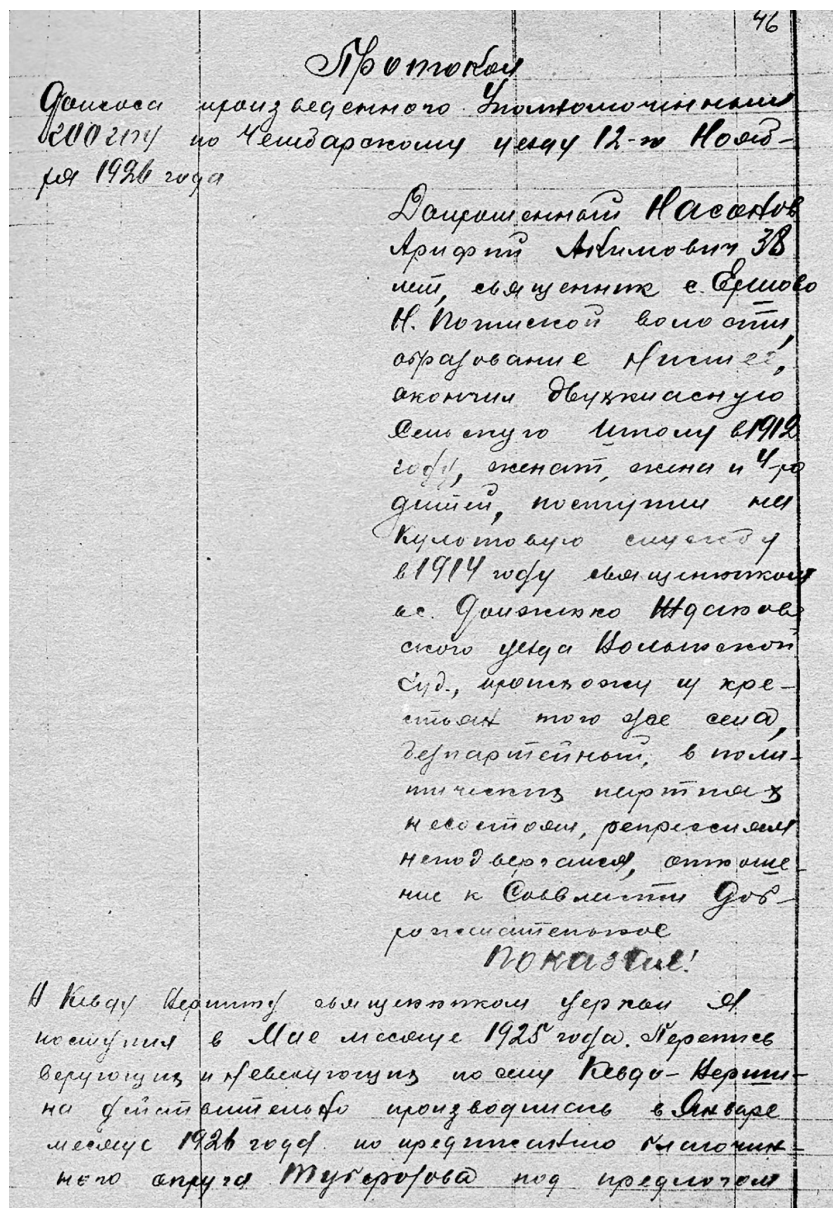 46
Протокол
Допроса произведенного Уполномоченным
ОГПУ по Чембарскому уезду 12-го Нояб-
ря 1926 года
Допрошенный Насонов
Арифий Акимович 38
лет, священник с. Ершово
Н. Поимской волости,
образование низшее,
окончил двухкласную
Сельскую школу в 1912
году, женат, жена и 4-ро
детей, поступил на
Культовую службу
в 1914 году священником
в с. Должико
ского уезда Волынской
Губ., происхожу из кре-
стьян того же села,
безпартейный, в поли-
тических партиях
несостоял, репрессиям
неподвергался, отноше-
ние к Соввласти Доб-
рожелательное
Показал!
В Кевду Вершину священником церкви я
поступил в Мае месяце 1925 года. Перепись
верующих и неверующих по селу Кевдо-Верши-
на действительно производилась в Январе
месяце 1926 года по предписанию благочин-
ного округа Туберозова под предлогом